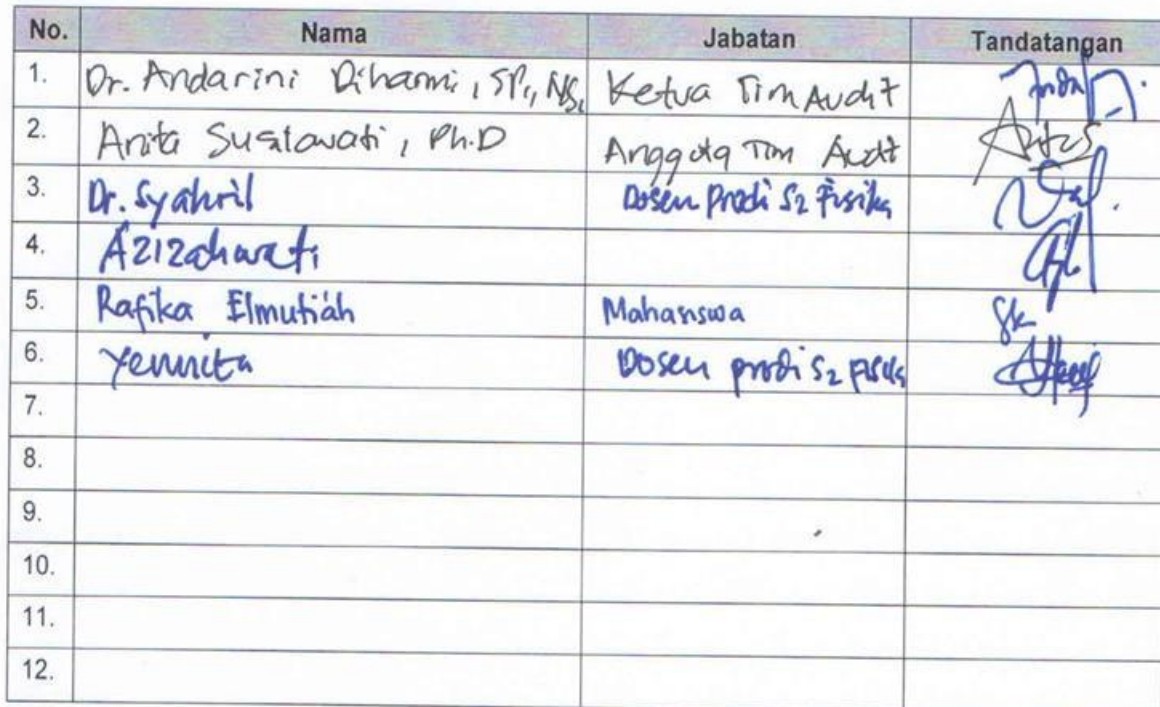 No. Nama Jabatan Tandatangan
1. Dr. Andarini Diharmi, SPi, Ketua Tim Audit
2. Anita Susilawati, Ph.D Anggota Tim Audit
3. Dr. Syahril Dosen Prodi S2 Fisika
4. Azizahwati
5. Rafika Elmutiah Mahasiswa
6. Yennita Dosen prodi S2 Fisika
7.
8.
9.
10.
11.
12.